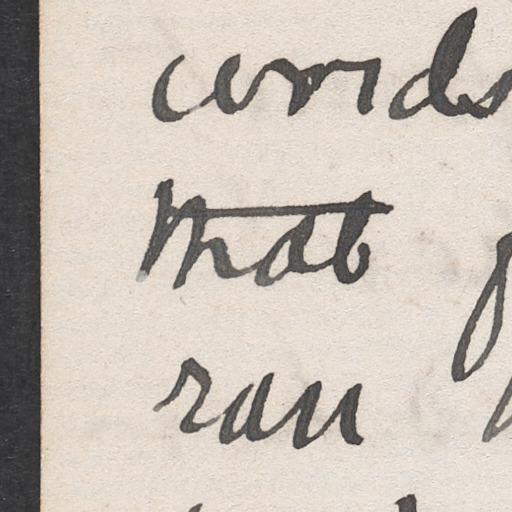 words
that
ran